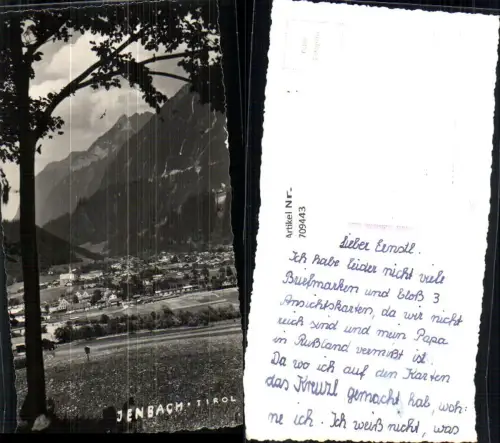 JENBACH · TIROL
Artikel Nr.
709443
Lieber Ernstl.
Ich habe leider nicht viele
Briefmarken und bloß 3
Ansichtskarten, da wir nicht
reich sind und mein Papa
in Rußland vermißt ist.
Da wo ich auf den Karten
das Kreuzl gemacht hab, woh=
ne ich. Ich weiß nicht, was